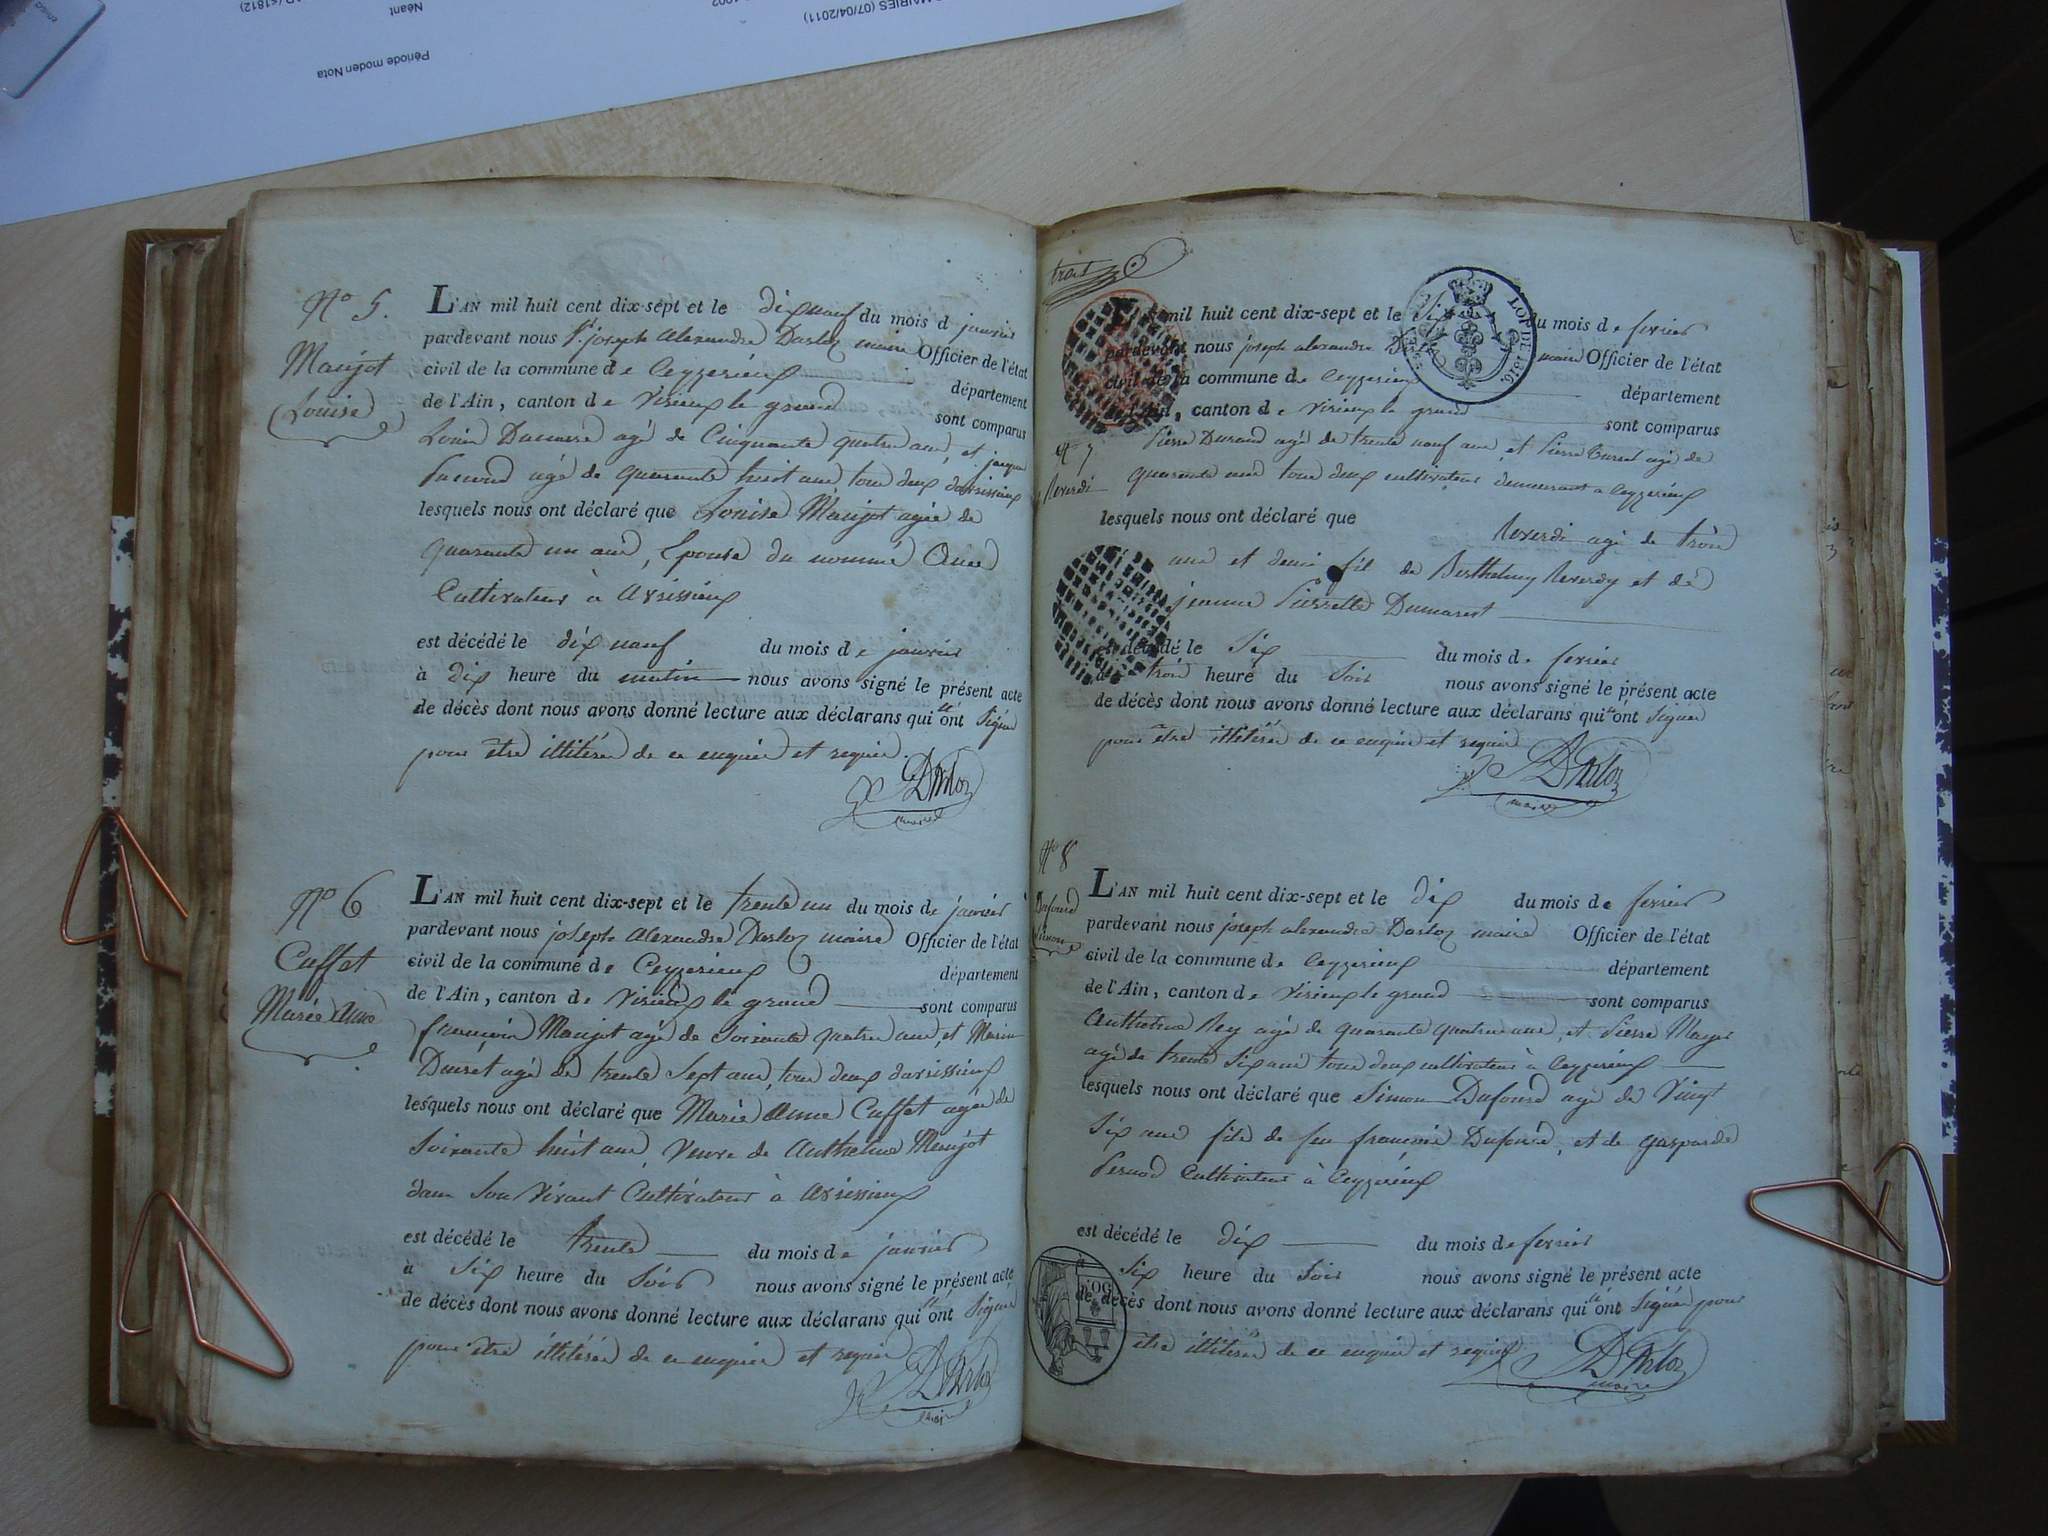 Période moden Nota
Néant
MAIRIES (07/04/2011)
N.º 5.
Maujot
Louise
L'AN mil huit cent dix-sept et le dix neuf du mois d janvier
pardevant nous joseph alexandre Darloz maire Officier de l'état
civil de la commune de Ceyzerieux département
de l'Ain, canton de Virieux le grand sont comparus
agé de Cinquante quatre ans, et jacque
agé de quarante huit ans, tous deux davrissieux
lesquels nous ont déclaré que Louise Maujot agée de
quarante un ans, Epouse du nommé
Cultivateur à avrissieux
est décédé le dix neuf du mois de janvier
à dix heure du matin nous avons signé le présent acte
de décès dont nous avons donné lecture aux déclarans qui ont signés
pour être illitérés de ce enquis et requis.
Darloz
maire
N.º 6
Cuffet
Marie anne
L'AN mil huit cent dix-sept et le trente un du mois de janvier
pardevant nous joseph alexandre Darloz maire Officier de l'état
civil de la commune de Ceyzerieux département
de l'Ain, canton de Virieux le grand sont comparus
françois Maujot agé de soixante quatre ans, et Marin
agé de trente sept ans, tous deux davrissieux
lesquels nous ont déclaré que Marie anne Cuffet agée de
soixante huit ans, veuve de anthelme Maujot
dans son vivant Cultivateur à avrissieux
est décédé le trente du mois de janvier
à six heure du soir nous avons signé le présent acte
de décès dont nous avons donné lecture aux déclarans qui ont signés
pour être illitérés de ce enquis et requis
Darloz
maire
trois
LOI DE 1816.
mil huit cent dix-sept et le six du mois de fevrier
pardevant nous joseph alexandre maire Officier de l'état
civil de la commune de Ceyzerieux département
de l'Ain, canton de Virieux le grand sont comparus
N.º 7
Reverdi
Pierre Durand agé de trente neuf ans, et Pierre agé de
quarante ans tous deux cultivateurs demeurant a Ceyzerieux
lesquels nous ont déclaré que Reverdi agé de trois
ans et demi fils de Berthelmy Reverdy et de
jeanne Pierrette Dumarest
est décédé le six du mois de fevrier
à trois heure du soir nous avons signé le présent acte
de décès dont nous avons donné lecture aux déclarans qui ont signés
pour être illitérés de ce enquis et requis
Darloz
maire
N.º 8
Dufour
Simon
L'AN mil huit cent dix-sept et le dix du mois de fevrier
pardevant nous joseph alexandre Darloz maire Officier de l'état
civil de la commune de Ceyzerieux département
de l'Ain, canton de Virieux le grand sont comparus
anthelme Rey agé de quarante quatre ans, et Pierre
agé de trente six ans tous deux cultivateurs à Ceyzerieux
lesquels nous ont déclaré que Simon Dufour agé de vingt
six ans fils de feu françois Dufour, et de gasparde
Pernod Cultivateur à Ceyzerieux
est décédé le dix du mois de fevrier
six heure du soir nous avons signé le présent acte
de décès dont nous avons donné lecture aux déclarans qui ont signés pour
être illitérés de ce enquis et requis
Darloz
maire